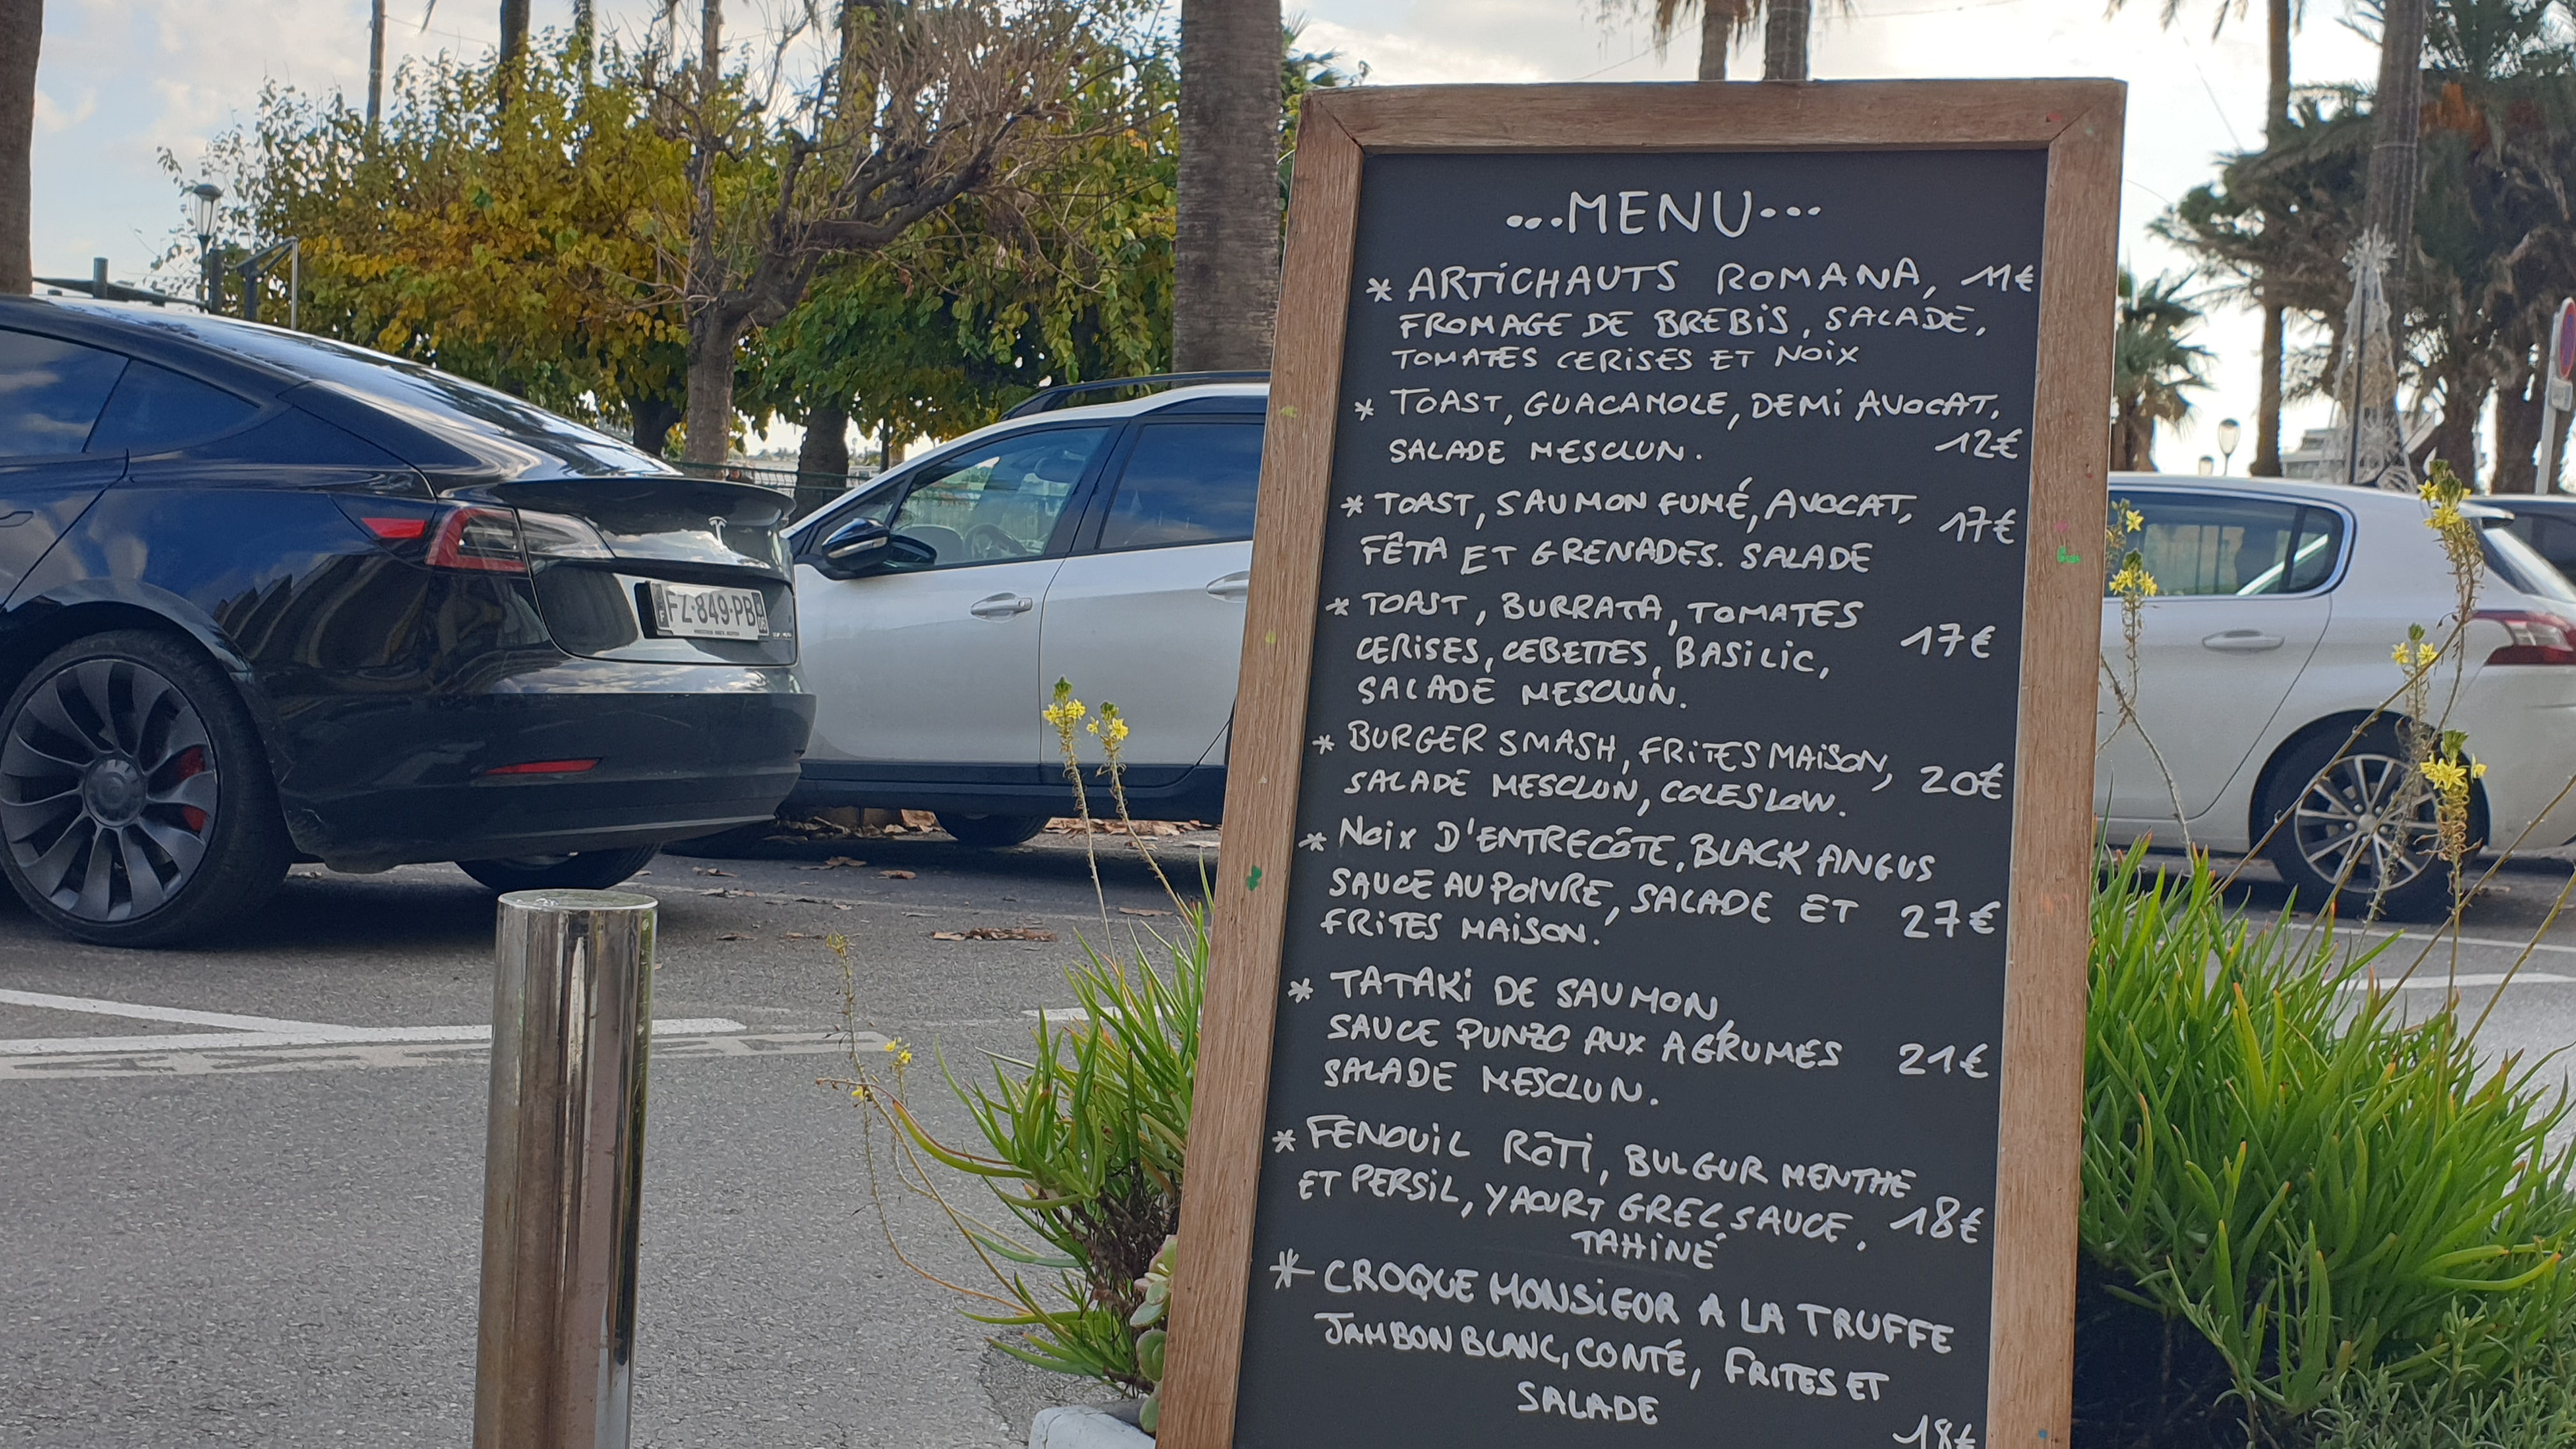 ...MENU...
* ARTICHAUTS ROMANA, 11€
FROMAGE DE BREBIS, SALADE,
TOMATES CERISES ET NOIX
* TOAST, GUACAMOLE, DEMI AVOCAT,
SALADE MESCLUN. 12€
* TOAST, SAUMON FUMÉ, AVOCAT, 17€
FÊTA ET GRENADES. SALADE
* TOAST, BURRATA, TOMATES
CERISES, CEBETTES, BASILIC, 17€
SALADE MESCLUN.
* BURGER SMASH, FRITES MAISON, 20€
SALADE MESCLUN, COLESLOW.
* NOIX D'ENTRECÔTE, BLACK ANGUS
SAUCE AU POIVRE, SALADE ET 27€
FRITES MAISON.
* TATAKI DE SAUMON,
SAUCE PUNZO AUX AGRUMES 21€
SALADE MESCLUN.
* FENOUIL RÔTI, BULGUR MENTHE
ET PERSIL, YAOURT GREC SAUCE. 18€
TAHINÉ
* CROQUE MONSIEOR A LA TRUFFE
JAMBON BLANC, CONTÉ, FRITES ET
SALADE
18€
F FZ-849-PB 06